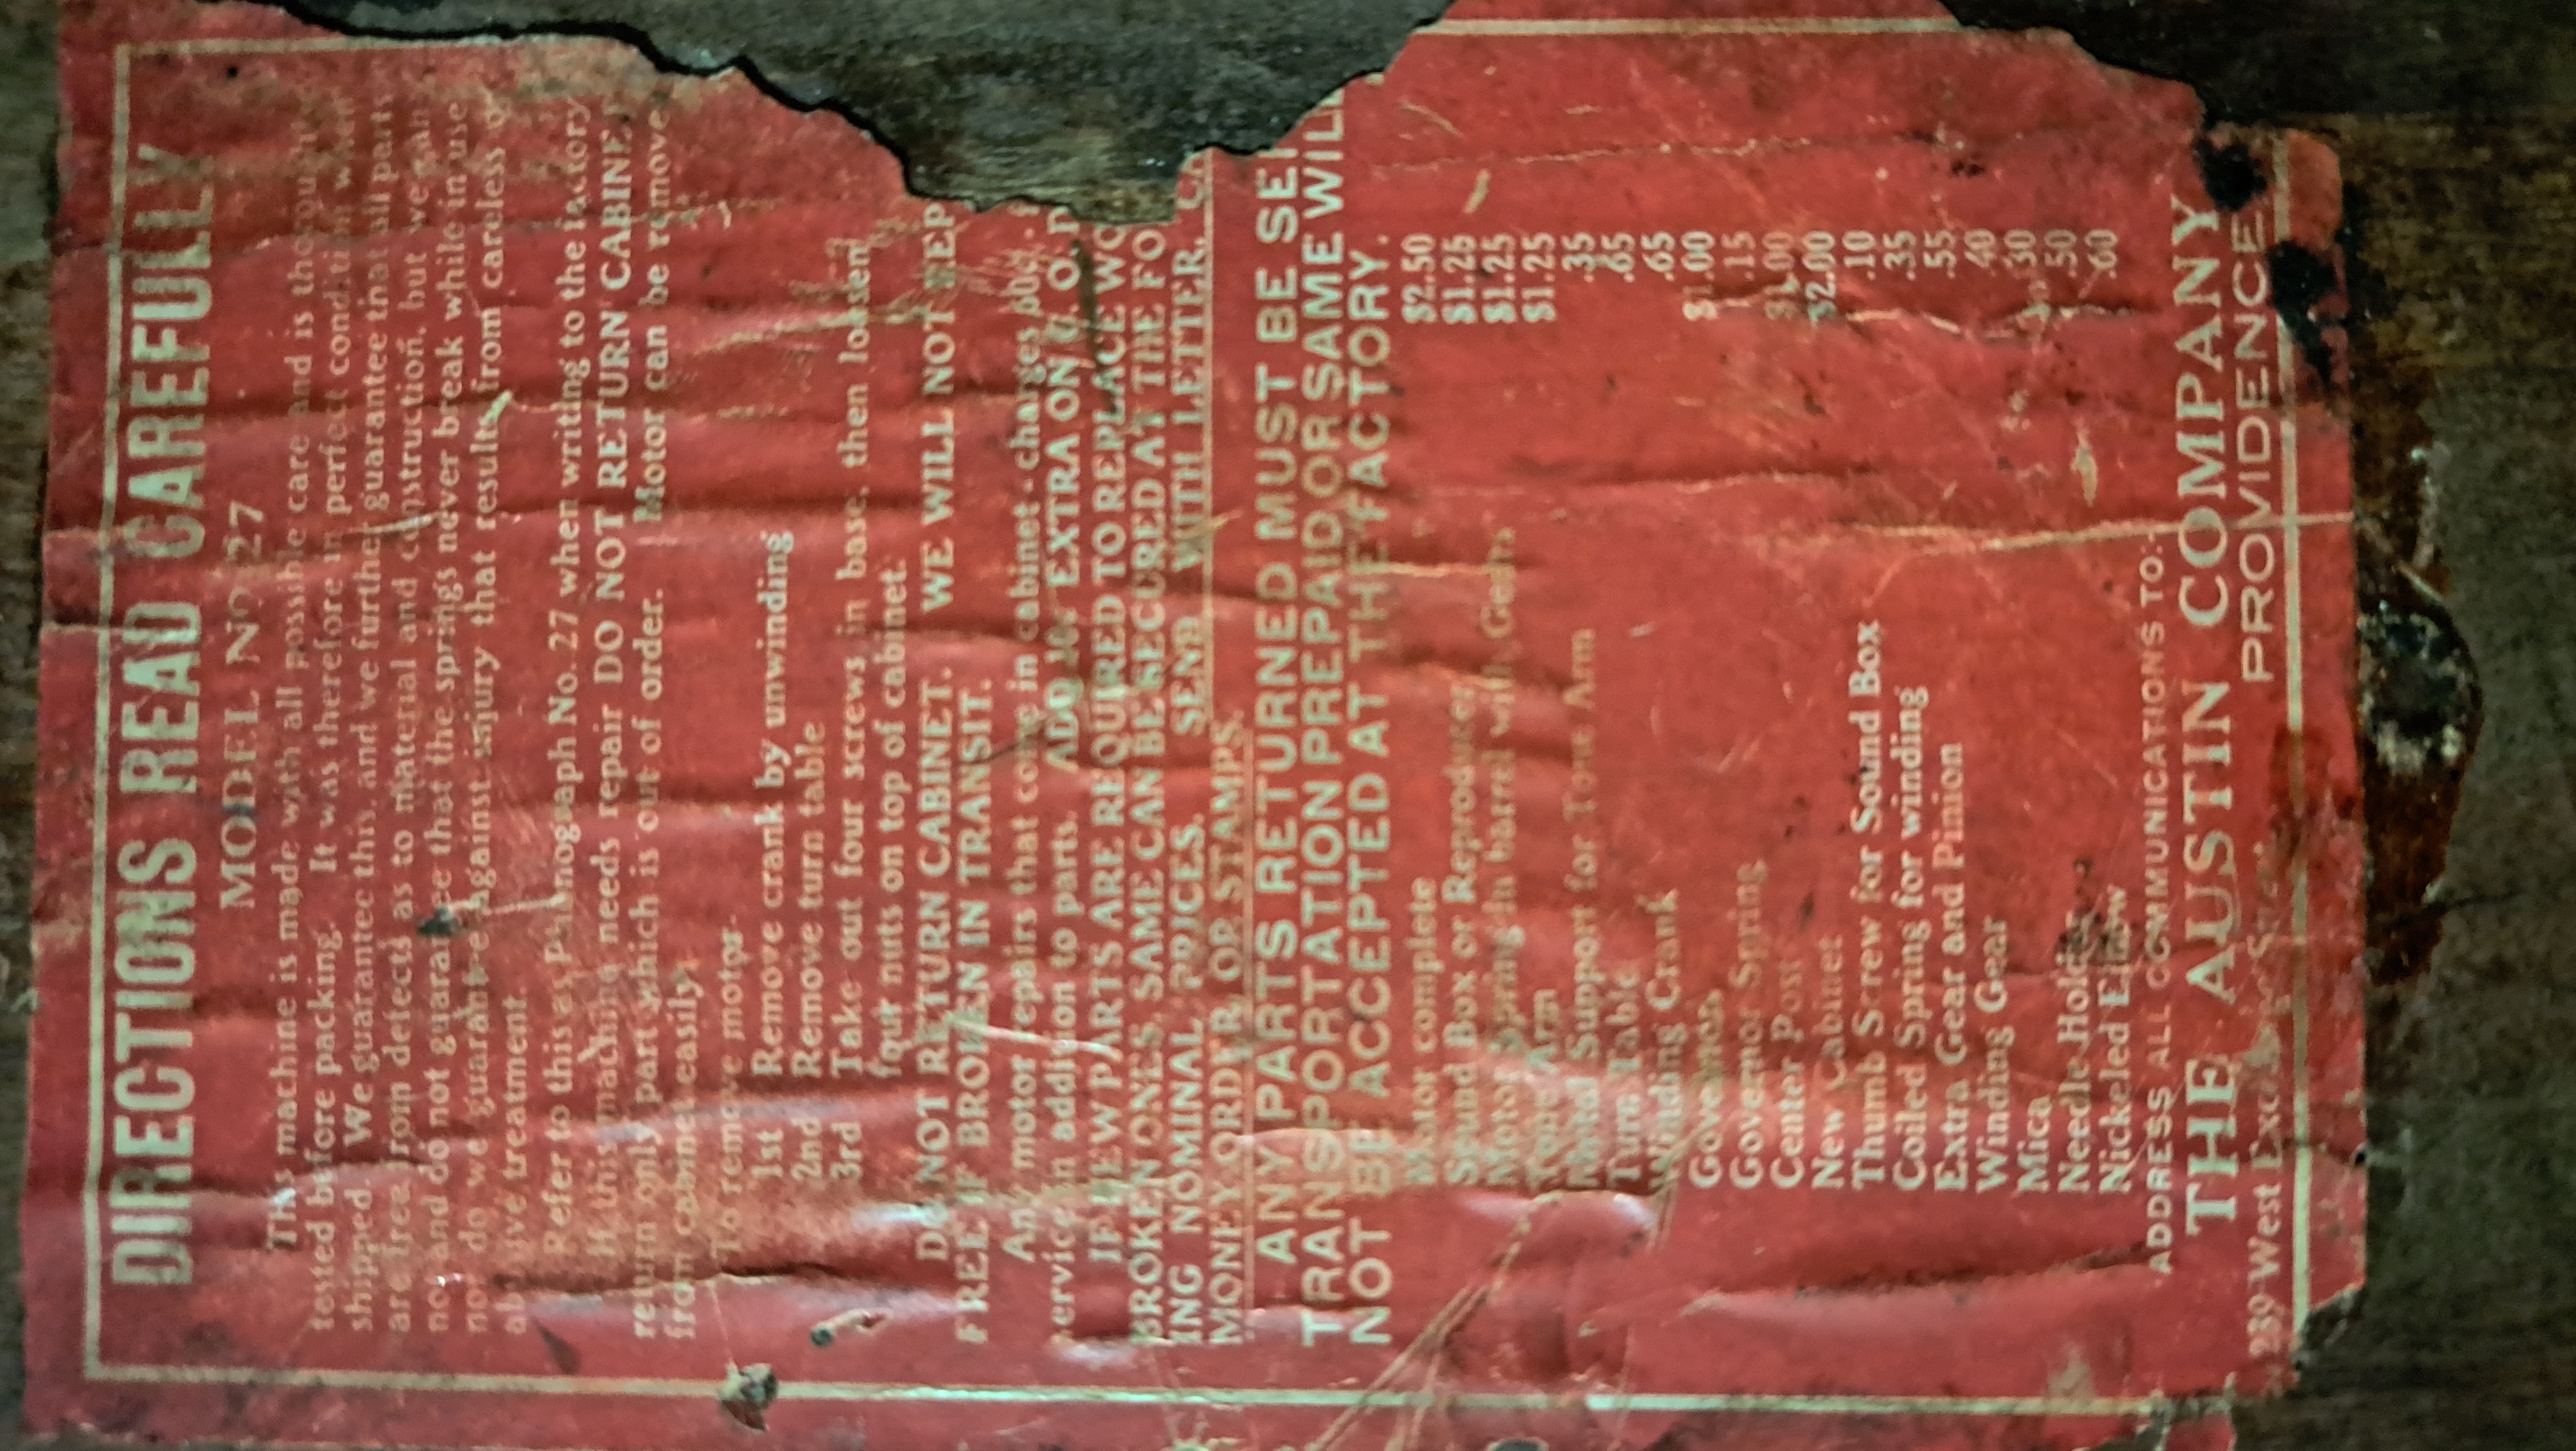 DIRECTIONS READ CAREFULLY
MODEL No 27
This machine is made with all possible care and is
tested before packing. It was therefore in perfect condition when
shipped. We guarantee this, and we further guarantee that all parts
are free from defects as to material and construction, but we can
not and do not guarantee that the springs never break while in use
nor do we guarantee against injury that results from careless
treatment.
Refer to this as Phonograph No. 27 when writing to the factory
If this machine needs repair DO NOT RETURN CABINE
return only part which is out of order. Motor can be remove
from cabinet easily.
To remove motor-
1st Remove crank by unwinding
2nd Remove turn table
3rd Take out four screws in base, then loosen
four nuts on top of cabinet.
DO NOT RETURN CABINET. WE WILL NOT REP
FREE IF BROKEN IN TRANSIT.
Any motor repairs that come in cabinet - charges
service in addition to parts. ADD 10c EXTRA ON C. O. D
IF NEW PARTS ARE REQUIRED TO REPLACE WO
BROKEN ONES SAME CAN BE SECURED AT THE FO
ING NOMINAL PRICES. SEND WITH LETTER,
MONEY ORDER OR STAMPS.
ANY PARTS RETURNED MUST BE SE
TRANSPORTATION PREPAID OR SAME WILL
NOT BE ACCEPTED AT THE FACTORY.
Motor complete $2.50
Sound Box or Reproducer $1.25
Motor Spring in barrel with Gears $1.25
Tone Arm $1.25
Metal Support for Tone Arm .35
Turn Table .65
Winding Crank .65
Governor $1.00
Governor Spring .15
Center Post $1.00
New Cabinet $2.00
Thumb Screw for Sound Box .10
Coiled Spring for winding .35
Extra Gear and Pinion .55
Winding Gear .40
Mica .30
Needle Holder .50
Nickeled Elbow .60
ADDRESS ALL COMMUNICATIONS TO:-
THE AUSTIN COMPANY
239 West Exchange Street PROVIDENCE